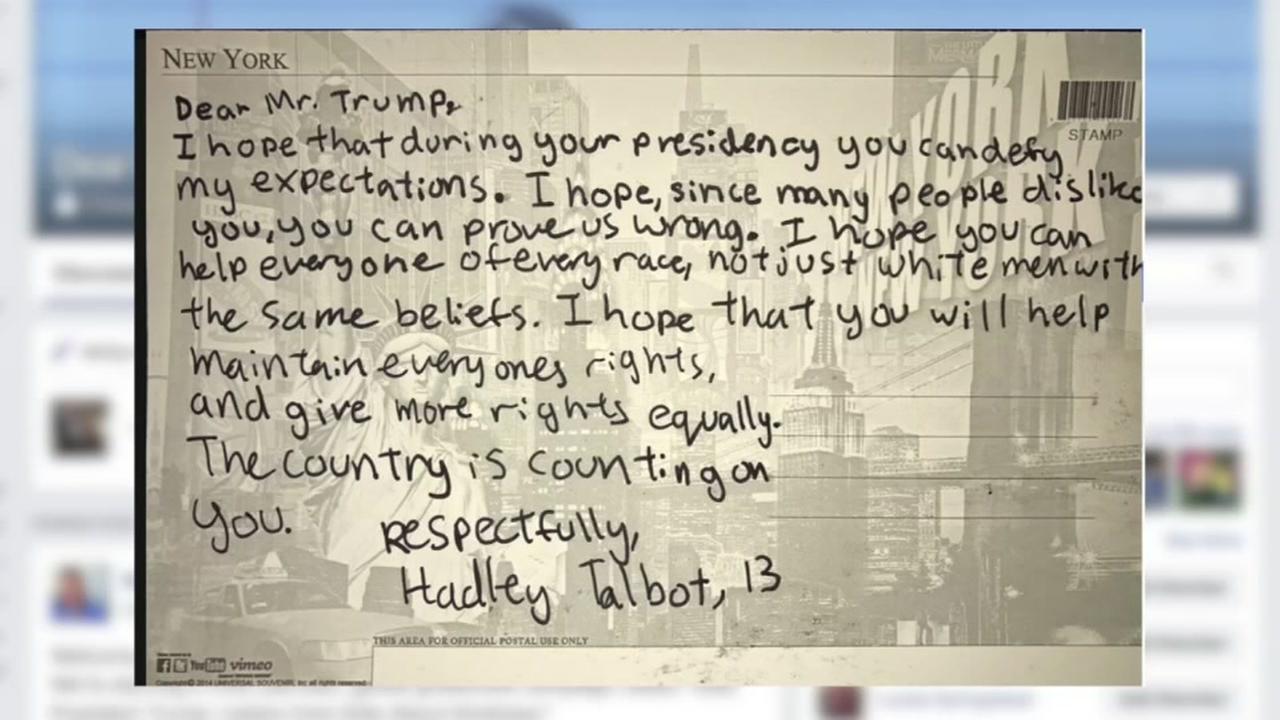 NEW YORK
Dear Mr. Trump,
I hope that during your presidency you can defy
STAMP
my expectations. I hope, since many people dislike
you, you can prove us wrong. I hope you can
help everyone of every race, not just white men with
the same beliefs. I hope that you will help
maintain everyones rights,
and give more rights equally.
The country is counting on
you.
respectfully,
Hadley Talbot, 13
THIS AREA FOR OFFICIAL POSTAL USE ONLY
YouTube vimeo
Copyright© 2014 UNIVERSAL SOUVENIR, Inc all rights reserved
NEW YORK